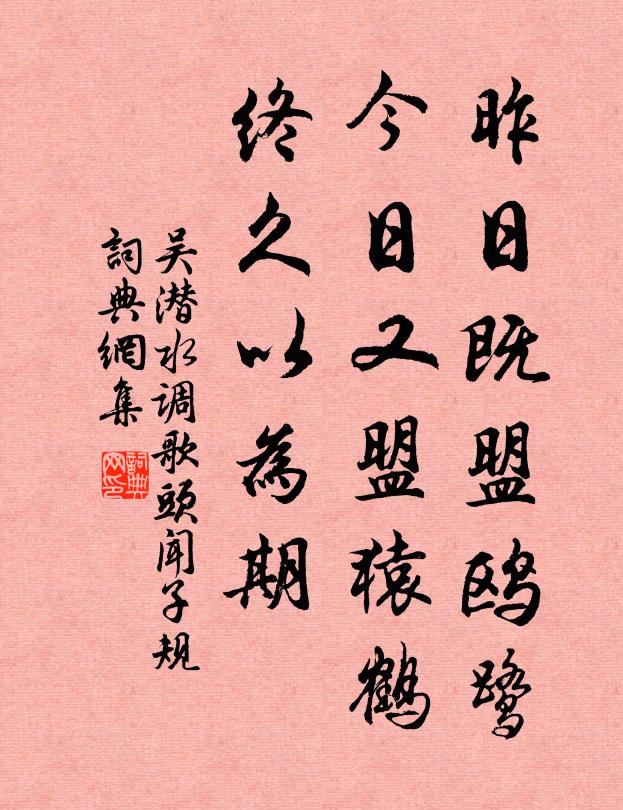 昨日既盟鸥鹭
今日又盟猿鹤
终久以為期
吴潜水调歌頭闻子规
詞典網集
詞典网印